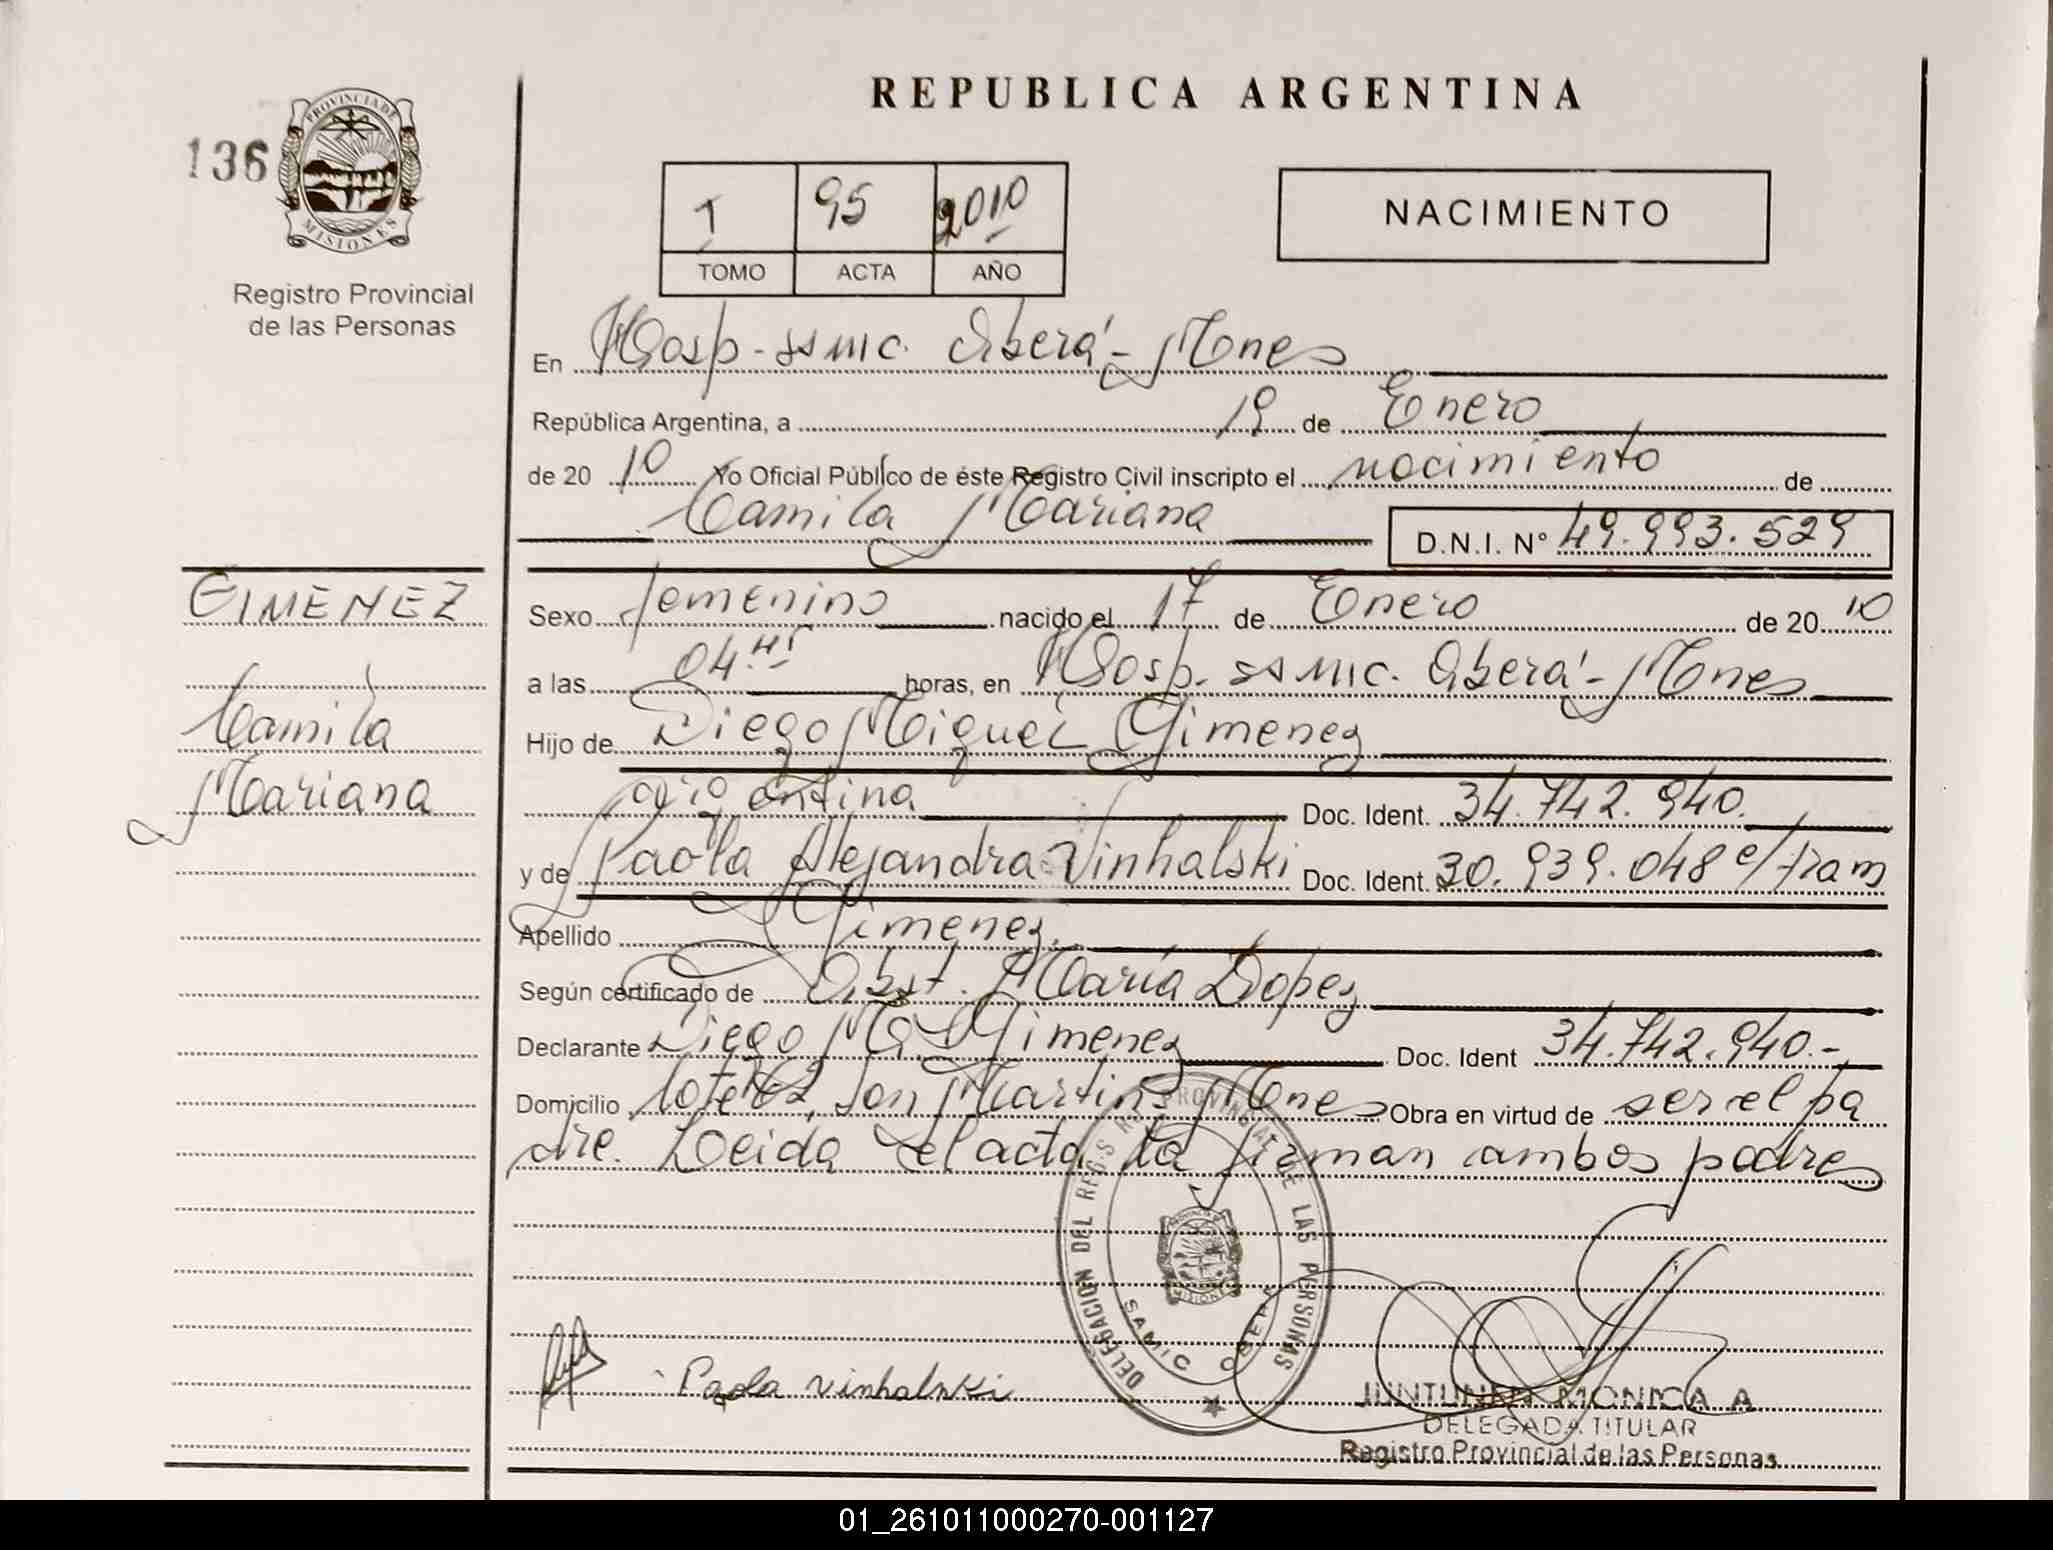 REPUBLICA ARGENTINA
136
PROVINCIA DE
MISIONES
Registro Provincial
de las Personas
T 95 2010
TOMO ACTA AÑO
NACIMIENTO
En Hosp-ssmc. Oberá-Mnes
República Argentina, a 19 de Enero
de 20 10 Yo Oficial Público de éste Registro Civil inscripto el nacimiento de
Camila Mariana D.N.I. N° 49.993.529
GIMENEZ
Camila
Mariana
Sexo femenino nacido el 17 de Enero de 20 10
a las 04 hs horas, en Hosp. ssmc. Oberá-Mnes
Hijo de Diego Miguel Gimenez
argentina Doc. Ident. 34.742.940.
y de Paola Alejandra Vinhalski Doc. Ident. 30.939.048 e/tram
Apellido Gimenez.
Según certificado de Obst. María Lopez
Declarante Diego M. Gimenez Doc. Ident 34.742.940.-
Domicilio lote San Martin Mnes Obra en virtud de ser el pa
dre. Leida el acta la firman ambos padres
DELEGACION DEL REG.S PROVINCIAL DE LAS PERSONAS
MISIONES
SAMIC OBERA
Paola Vinhalski
JUNTUNEN MONICA A
DELEGADA TITULAR
Registro Provincial de las Personas
01_261011000270-001127